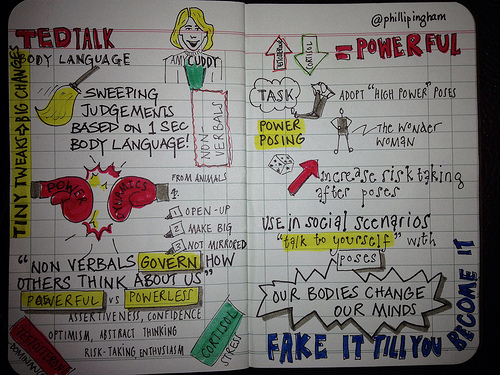 TED TALK
BODY LANGUAGE
AMY CUDDY
TINY TWEAKS → BIG CHANGES
SWEEPING
JUDGEMENTS
BASED ON 1 SEC
BODY LANGUAGE!
NON
VERBALS
POWER
DYNAMICS
FROM ANIMALS
1 OPEN-UP
2 MAKE BIG
3 NOT MIRRORED
"NON VERBALS GOVERN HOW
OTHERS THINK ABOUT US"
POWERFUL vs POWERLESS
ASSERTIVENESS, CONFIDENCE
OPTIMISM, ABSTRACT THINKING
RISK-TAKING, ENTHUSIASM
TESTOSTERONE
DOMINANCE
CORTISOL
STRESS
@phillipingham
CORTISOL
= POWERFUL
TASK
ADOPT "HIGH POWER" POSES
POWER
POSING
THE WONDER
WOMAN
Increase risk taking
after poses
USE in social scenarios
"talk to yourself" with
POSES
OUR BODIES CHANGE
OUR MINDS
FAKE IT TILL YOU
BECOME IT